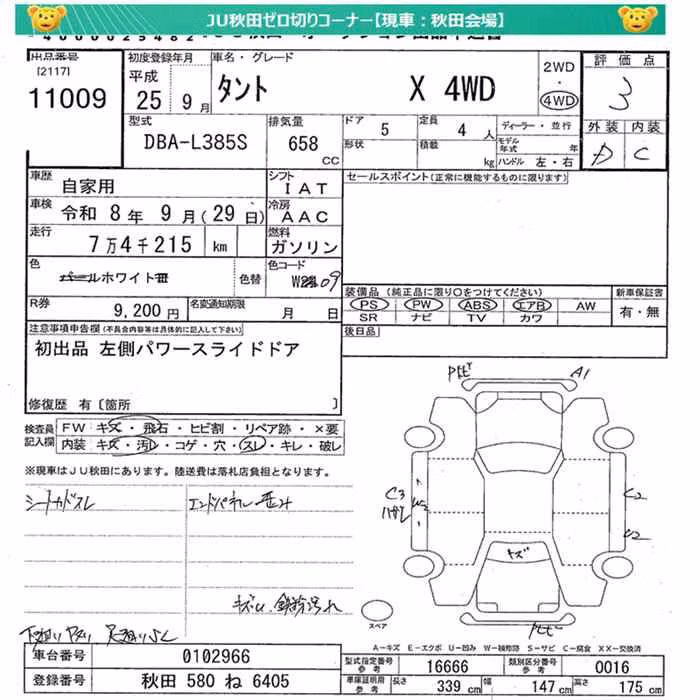 JU秋田ゼロ切りコーナー【現車：秋田会場】
出品番号
[2117]
11009
初度登録年月
平成
25 9月
車名・グレード
タント X 4WD
2WD
・
4WD
評価点
3
外装 内装
D C
型式
DBA-L385S
排気量
658
CC
ドア 5
形状
定員 4 人
積載 kg
ディーラー・並行
モデル年式 年
ハンドル 左・右
車歴
自家用
シフト
IAT
車検
令和 8年 9月(29日)
冷房
AAC
走行
7万4千215 km
燃料
ガソリン
セールスポイント(正常に機能するものに限ります)
色
パールホワイトⅢ
色替
色コード
W09
R券
9,200円
名変通知期限
月 日
装備品(純正品に限り○をつけてください)
PS PW ABS エアB AW
SR ナビ TV カワ
新車保証書
有・無
後日品
注意事項申告欄(不具合内容等は具体的に記入して下さい)
初出品 左側パワースライドドア
修復歴 有〔箇所 〕
検査員
記入欄
FW キズ・飛石・ヒビ割・リペア跡・×要
内装 キズ・汚レ・コゲ・穴・スレ・キレ・破レ
※現車はJU秋田にあります。陸送費は落札店負担となります。
シートカドスレ
エンドパネル歪み
A1
C3
ハガレ
C2
キズ
スペア
A－キズ E－エクボ U－凹み W－補修跡 S－サビ C－腐食 XX－交換済
車台番号 0102966
登録番号 秋田 580 ね 6405
型式指定番号
参考
16666
類別区分番号
参考
0016
車庫証明用
参考
長さ 339 cm 幅 147 cm 高さ 175 cm